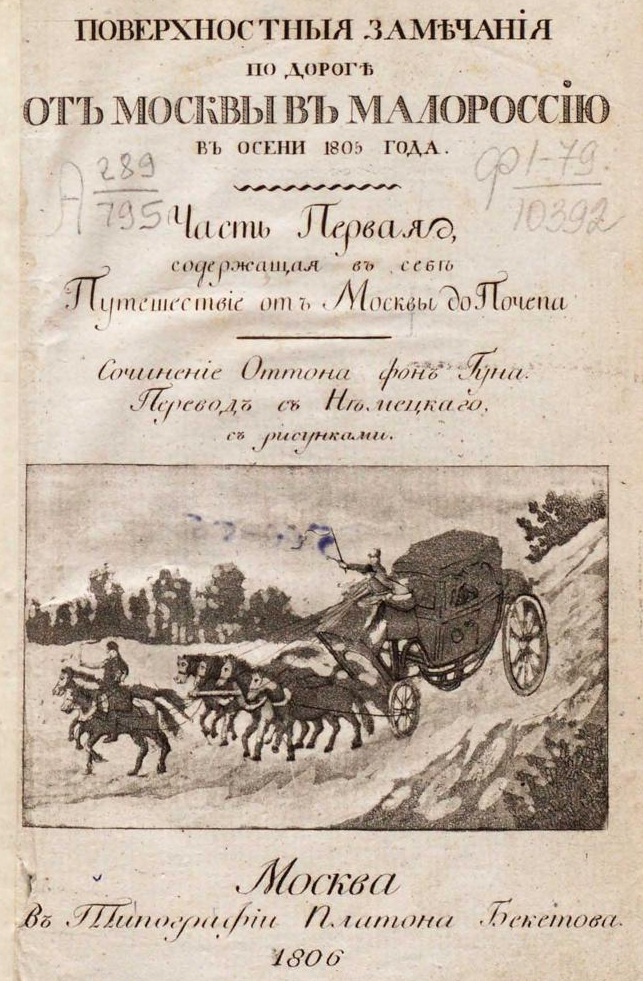 ПОВЕРХНОСТНЫЯ ЗАМѢЧАНІЯ
ПО ДОРОГѢ
ОТЪ МОСКВЫ ВЪ МАЛОРОССІЮ
ВЪ ОСЕНИ 1805 ГОДА.
А 289
795
Ф 1-79
10392
Часть Первая,
содержащая въ себѣ
Путешествіе отъ Москвы до Почепа
Сочиненіе Оттона фонъ Гуна.
Переводъ съ Нѣмецкаго,
съ рисунками.
Москва
Въ Типографіи Платона Бекетова.
1806